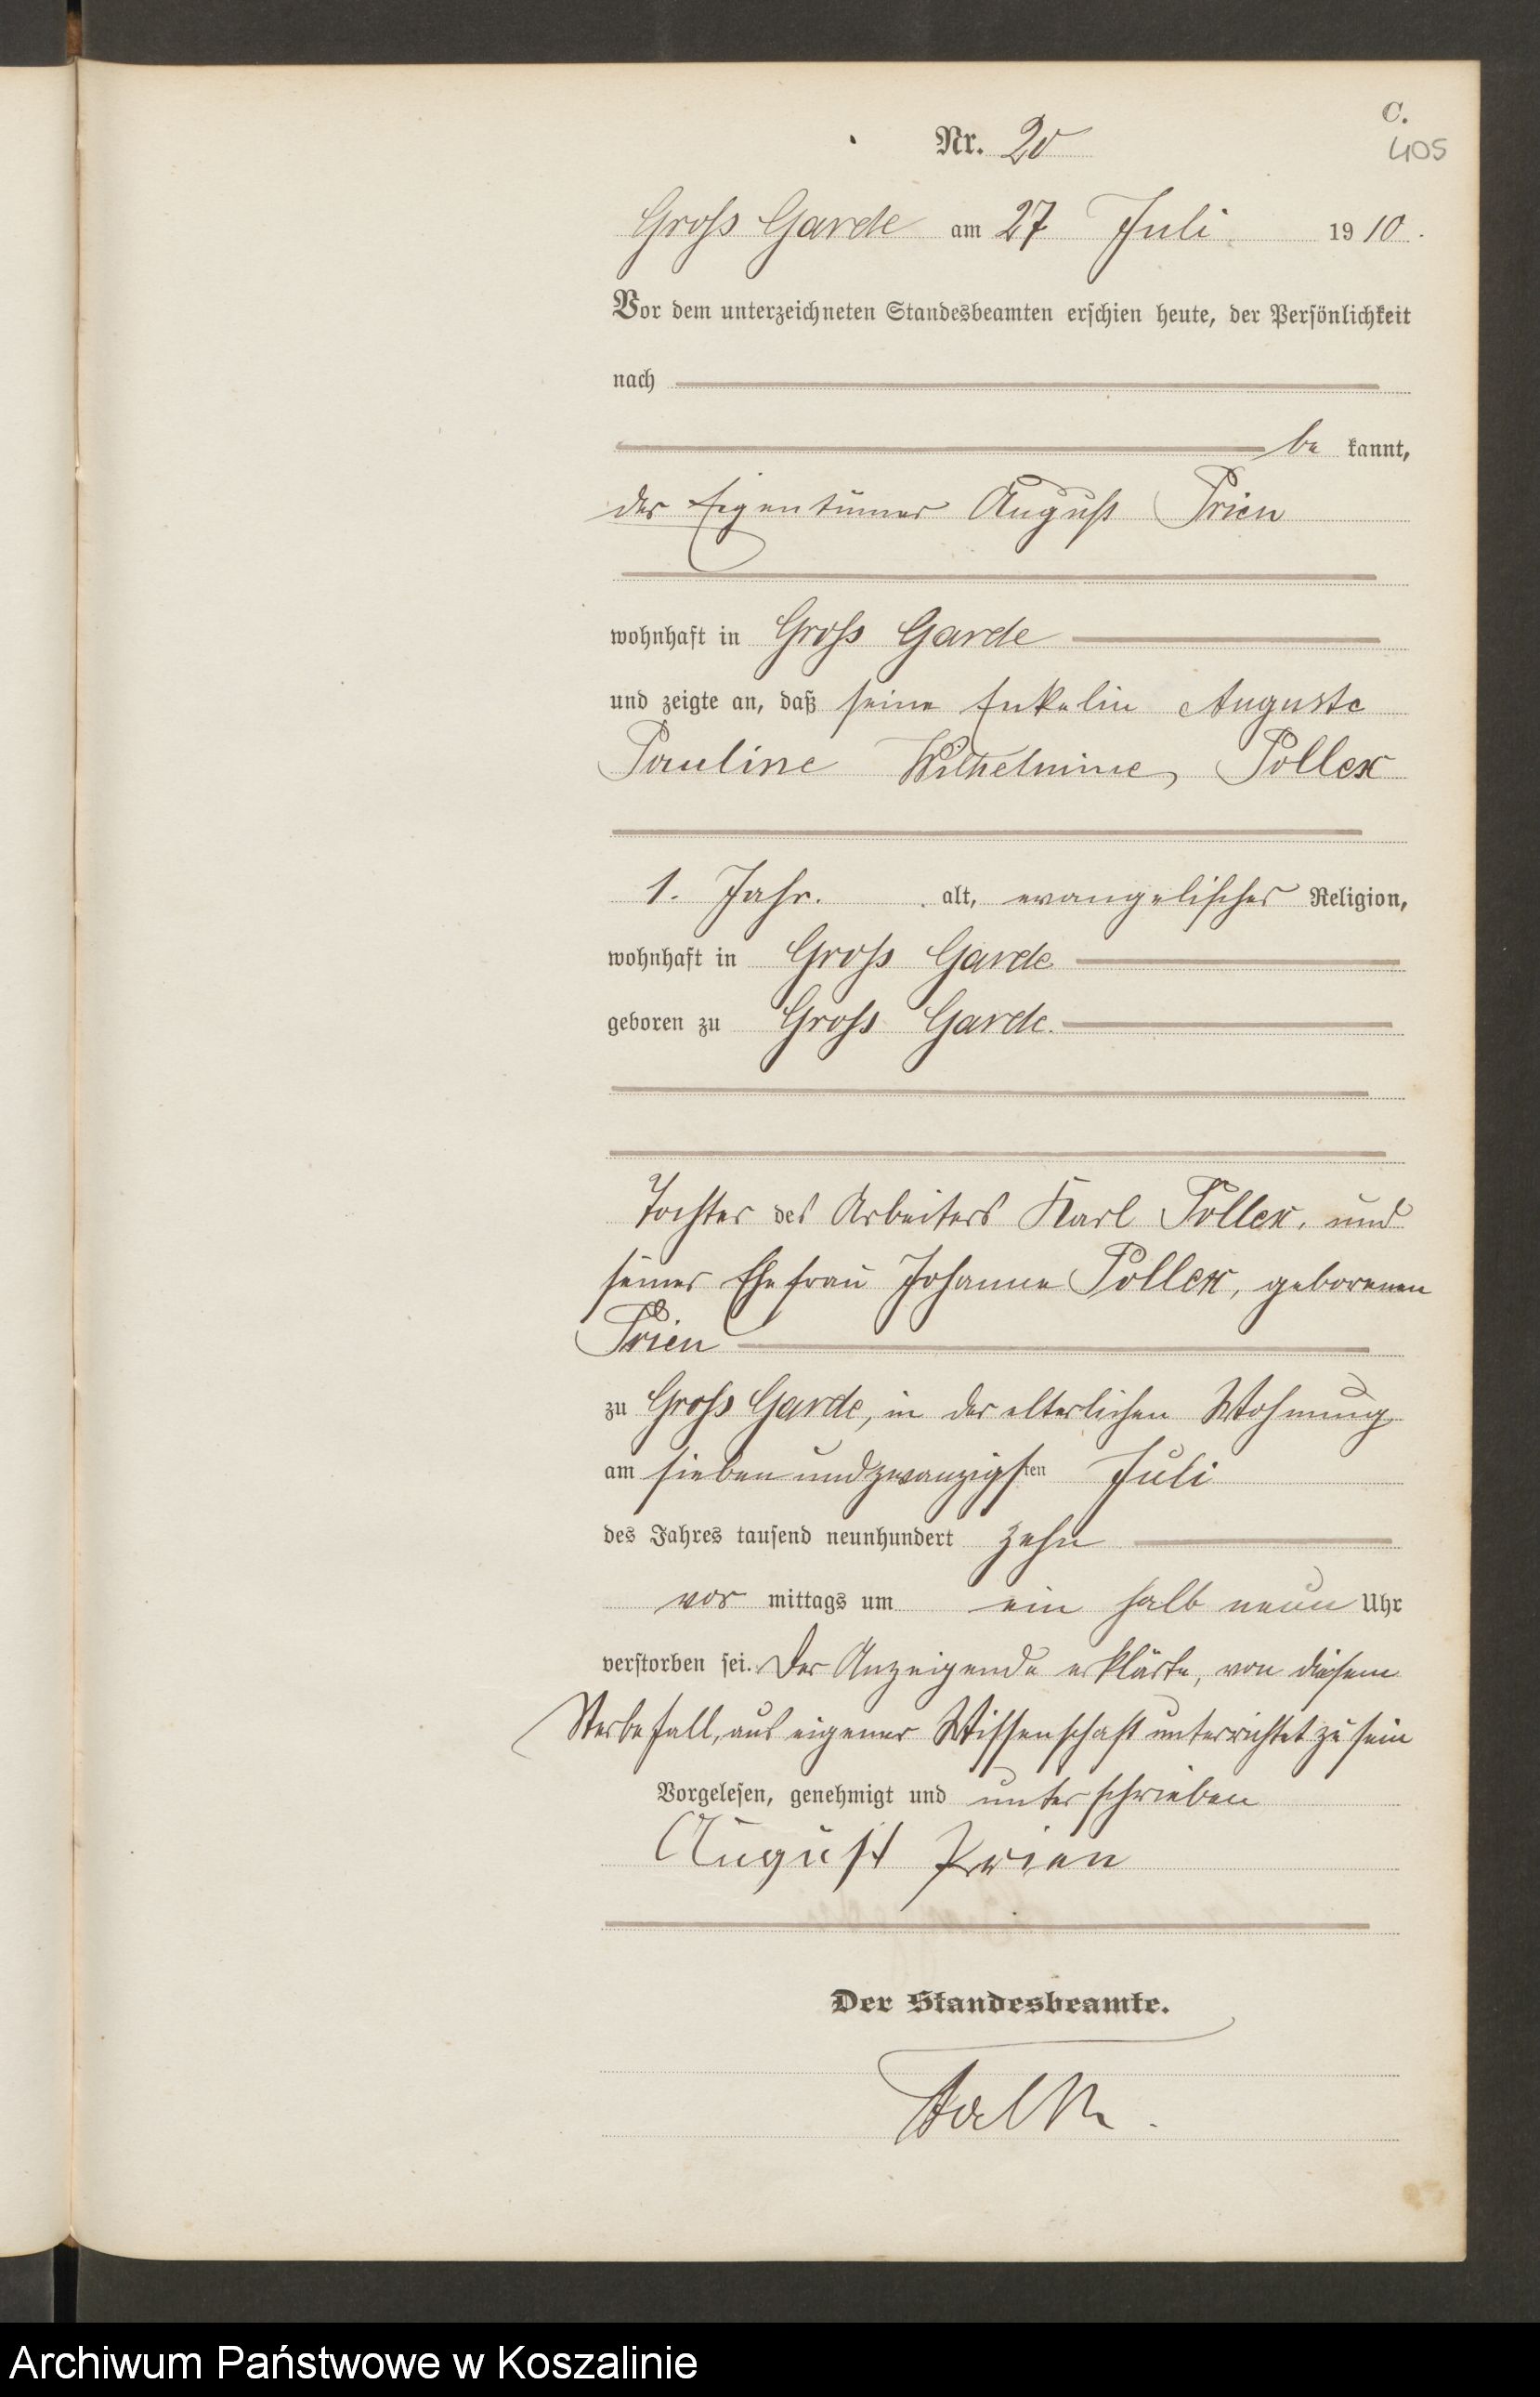 C.
Nr. 20
405
Gross Garde am 27 Juli 1910.
Vor dem unterzeichneten Standesbeamten erschien heute, der Persönlichkeit
nach
be kannt,
der Eigentümer August Prien
wohnhaft in Gross Garde
und zeigte an, daß seine Enkelin Auguste
Pauline Wilhelmine, Pollex
1. Jahr. alt, evangelischer Religion,
wohnhaft in Gross Garde
geboren zu Gross Garde.
Tochter des Arbeiters Karl Pollex, und
seiner Ehefrau Johanne Pollex, geborenen
Prien
zu Gross Garde, in der elterlichen Wohnung
am siebenundzwanzigsten Juli
des Jahres tausend neunhundert zehn
vor mittags um ein halb neun Uhr
verstorben sei. Der Anzeigende erklärte, von diesem
Sterbefall, aus eigener Wissenschaft unterrichtet zu sein
Vorgelesen, genehmigt und unterschrieben
August Prien
Der Standesbeamte.
Falk.
Archiwum Państwowe w Koszalinie